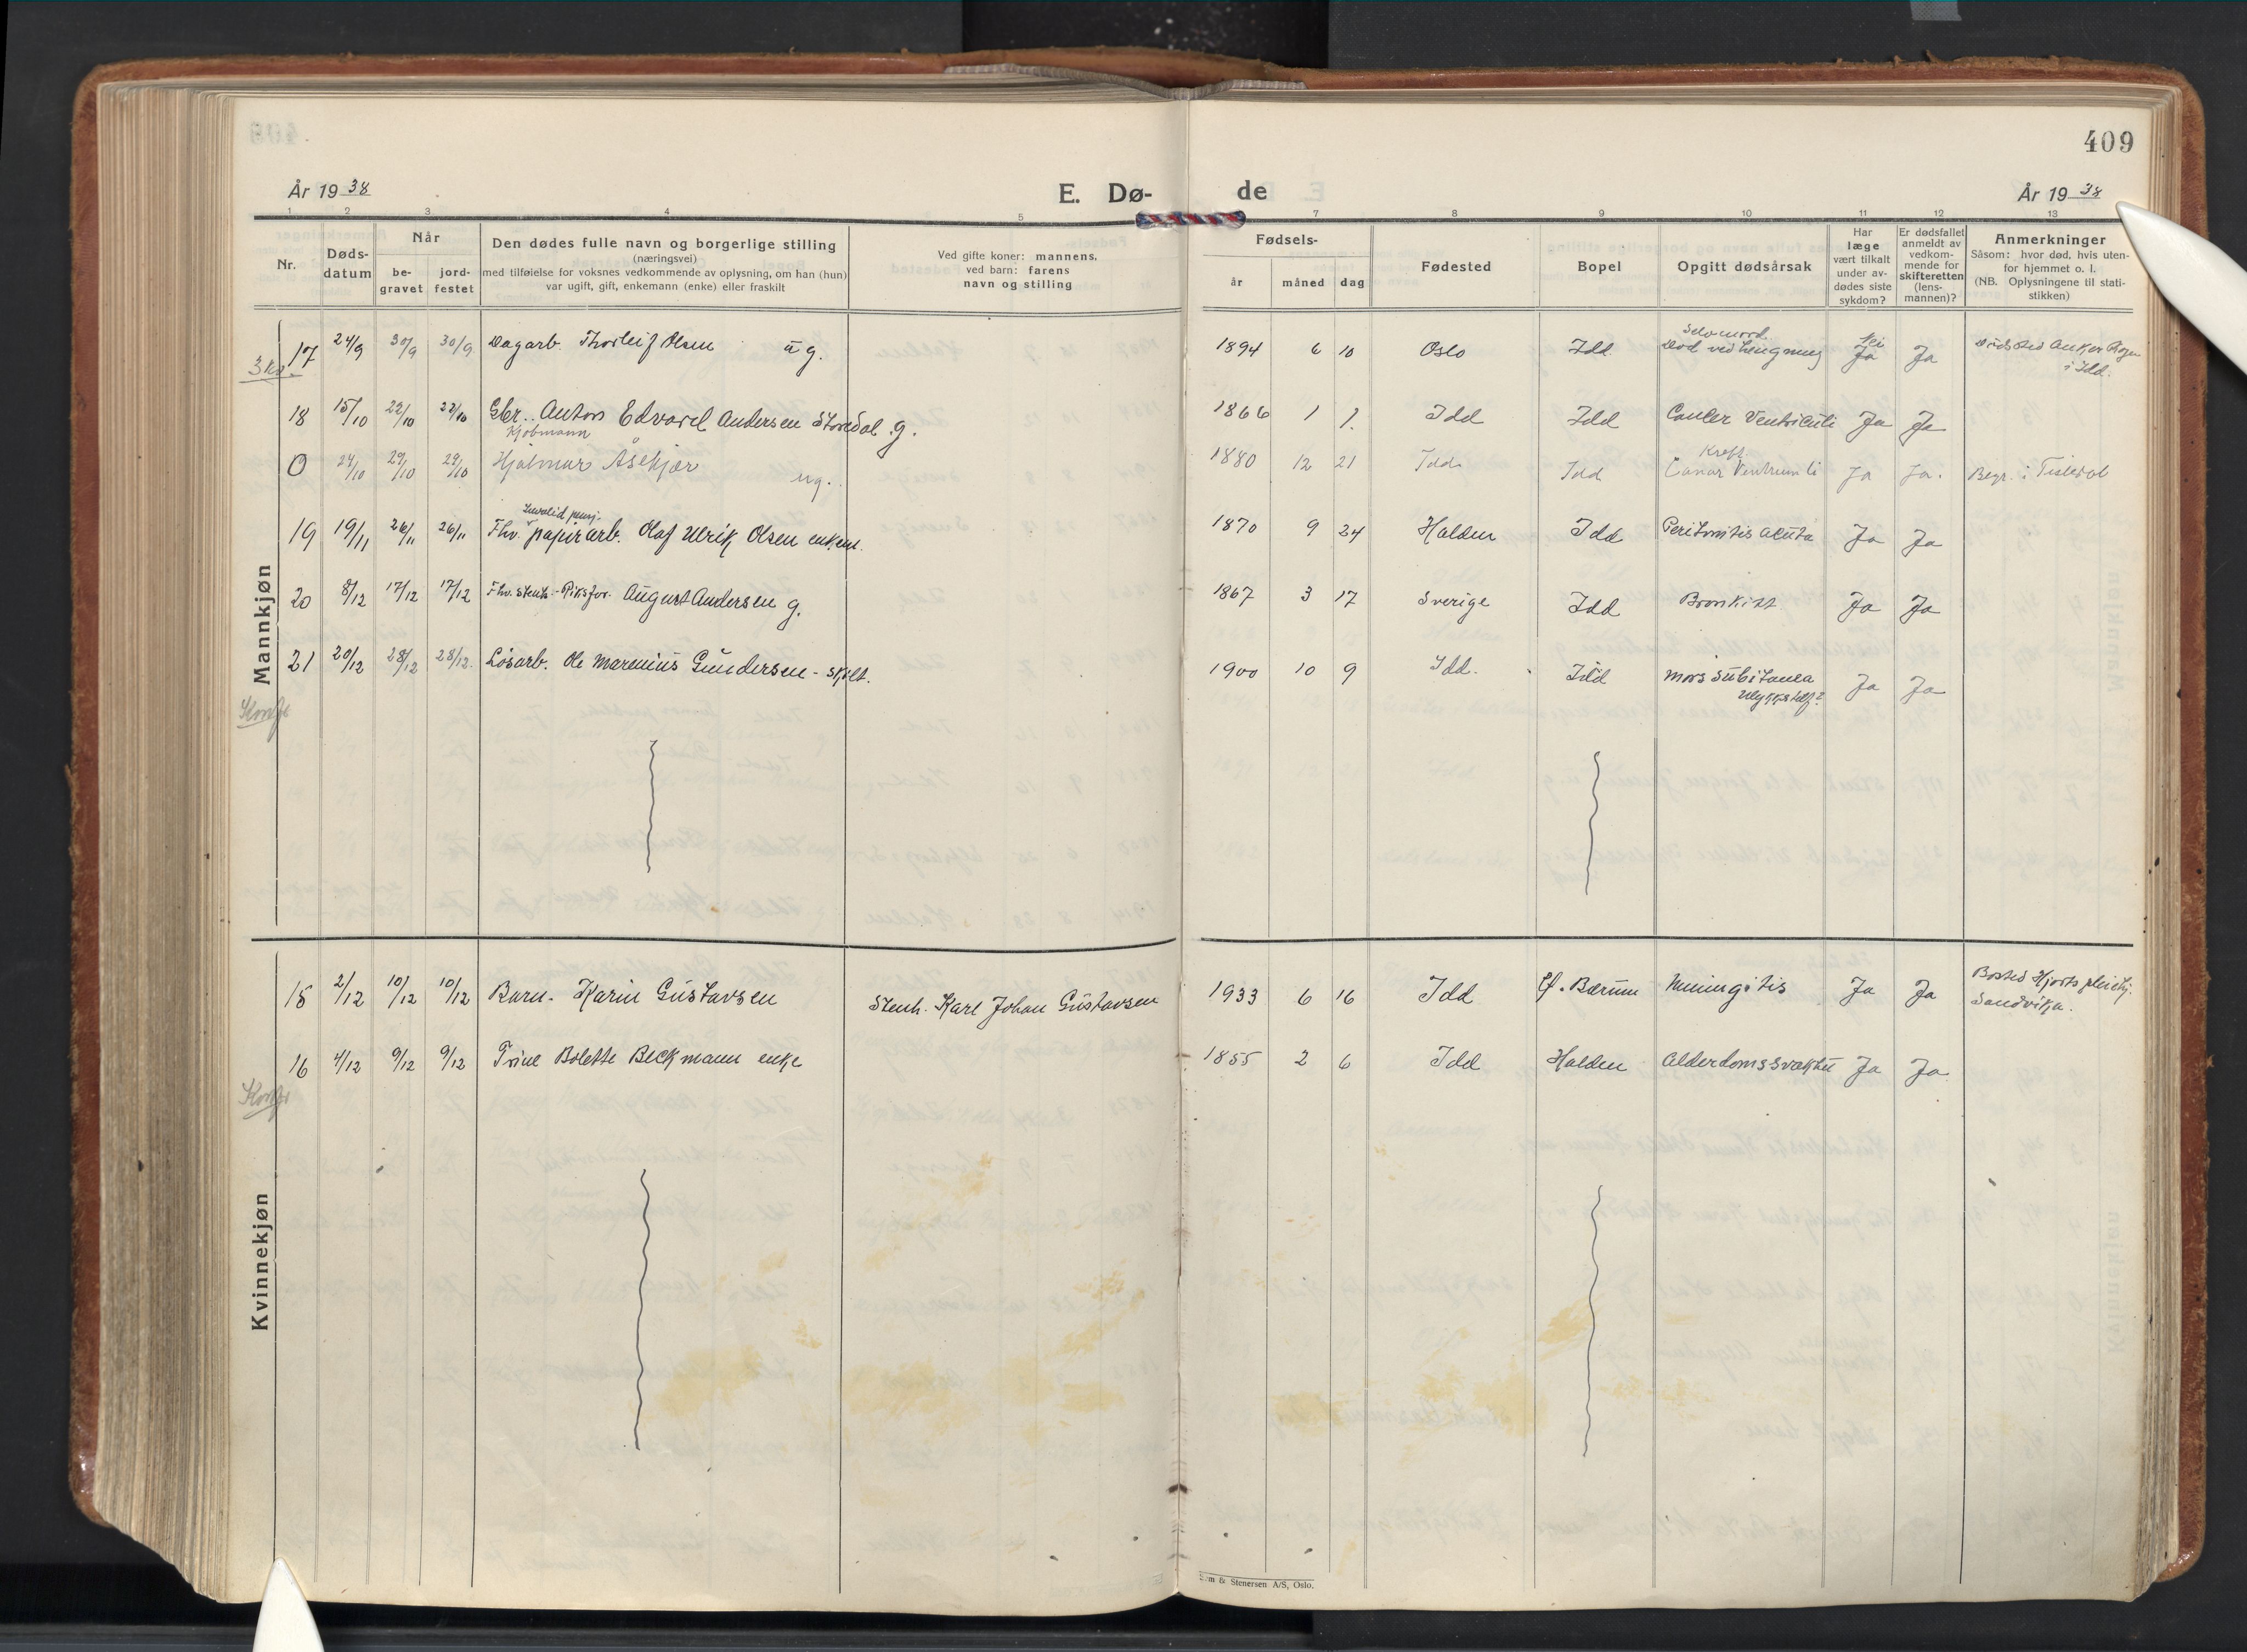 409
År 19 38
E. Dø- de
År 19 38
1 2 3 4 5 7 8 9 10 11 12 13
Nr.
Døds-
datum
Når
be-
gravet
jord-
festet
Den dødes fulle navn og borgerlige stilling
(næringsvei)
med tilføielse for voksnes vedkommende av oplysning, om han (hun)
var ugift, gift, enkemann (enke) eller fraskilt
Ved gifte koner: mannens,
ved barn: farens
navn og stilling
Fødsels-
år måned dag
Fødested
Bopel
Opgitt dødsårsak
Har
læge
vært tilkalt
under av-
dødes siste
sykdom?
Er dødsfallet
anmeldt av
vedkom-
mende for
skifteretten
(lens-
mannen)?
Anmerkninger
Såsom: hvor død, hvis uten-
for hjemmet o. l.
(NB. Oplysningene til stati-
stikken)
Mannkjøn
Selvmord
17 24/9 30/9 30/9 Dagarb. Thorleif Olsen ug. 1894 6 10 Oslo Idd Død ved hengning Ja Ja Dødsted Anker
i Idd.
18 15/10 22/10 22/10 Gbr. Anton Edvard Andersen Storedal g. 1866 1 1. Idd Idd Cancer Ventriculi Ja Ja
Kjøbmann
Kreft
0 24/10 29/10 29/10 Hjalmar Åsekjær ug. 1880 12 21 Idd Idd Ventrumli Ja Ja. Begr. i Tistedal
Invalid pensj.
19 19/11 26/11 26/11 Fhv. papirarb. Olaf Ulrik Olsen enkem. 1870 9 24 Halden Idd Peritonitis acuta Ja Ja
20 8/12 17/12 17/12 Fhv. stenh. August Andersen g. 1867 3 17 Sverige Idd Bronkitt Ja Ja
21 20/12 28/12 28/12. Løsarb. Ole Marenius Gundersen - skilt. 1900 10 9 Idd. Idd Mors subitanea Ja Ja
Ulykkestilf?
Kvinnekjøn
15 2/12 10/12 10/12 Barn. Karin Gustavsen Stenh. Karl Johan Gustavsen 1933 6 16 Idd Ø. Bærum Meningitis Ja Ja Bosted Hjorts pleiehj.
Sandvika.
16 4/12 9/12 9/12 Trine Bolette Beckmann enke 1855 2 6 Idd Halden Alderdomssvakhet Ja Ja
& Stenersen A/S, Oslo.